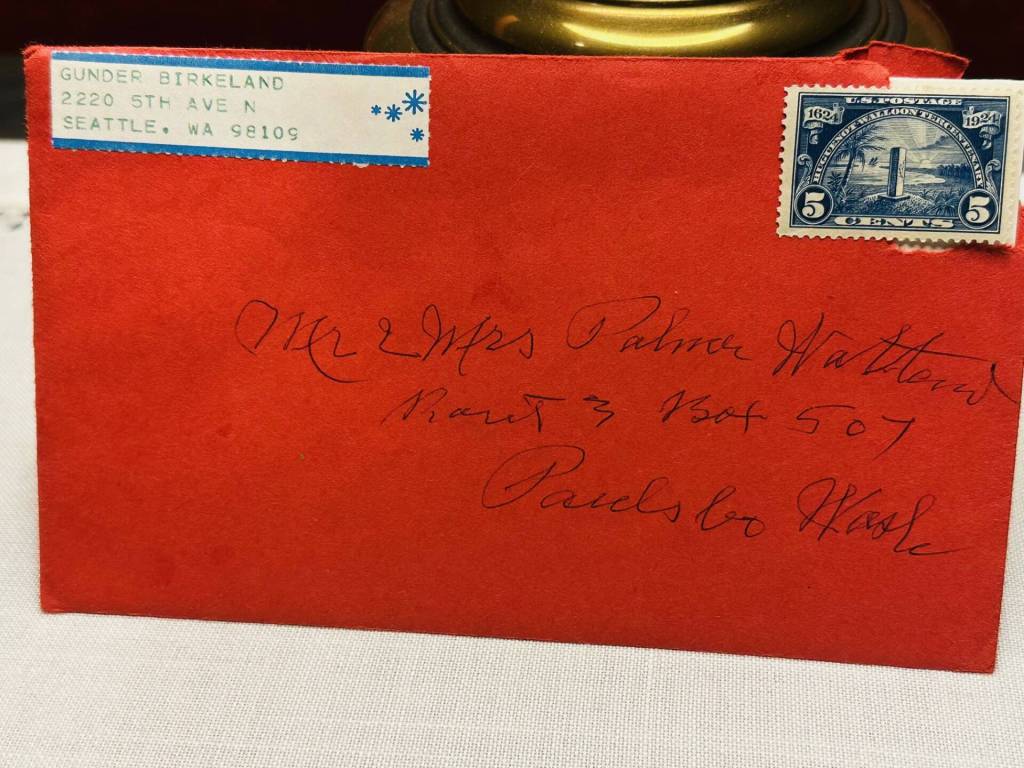 GUNDER BIRKELAND
2220 5TH AVE N
SEATTLE, WA 98109
U.S. POSTAGE
1624 1924
HUGUENOT WALLOON TERCENTENARY
5 5
CENTS
Mr & Mrs Palmer
Rout 3 Box 507
Poulsbo Wash